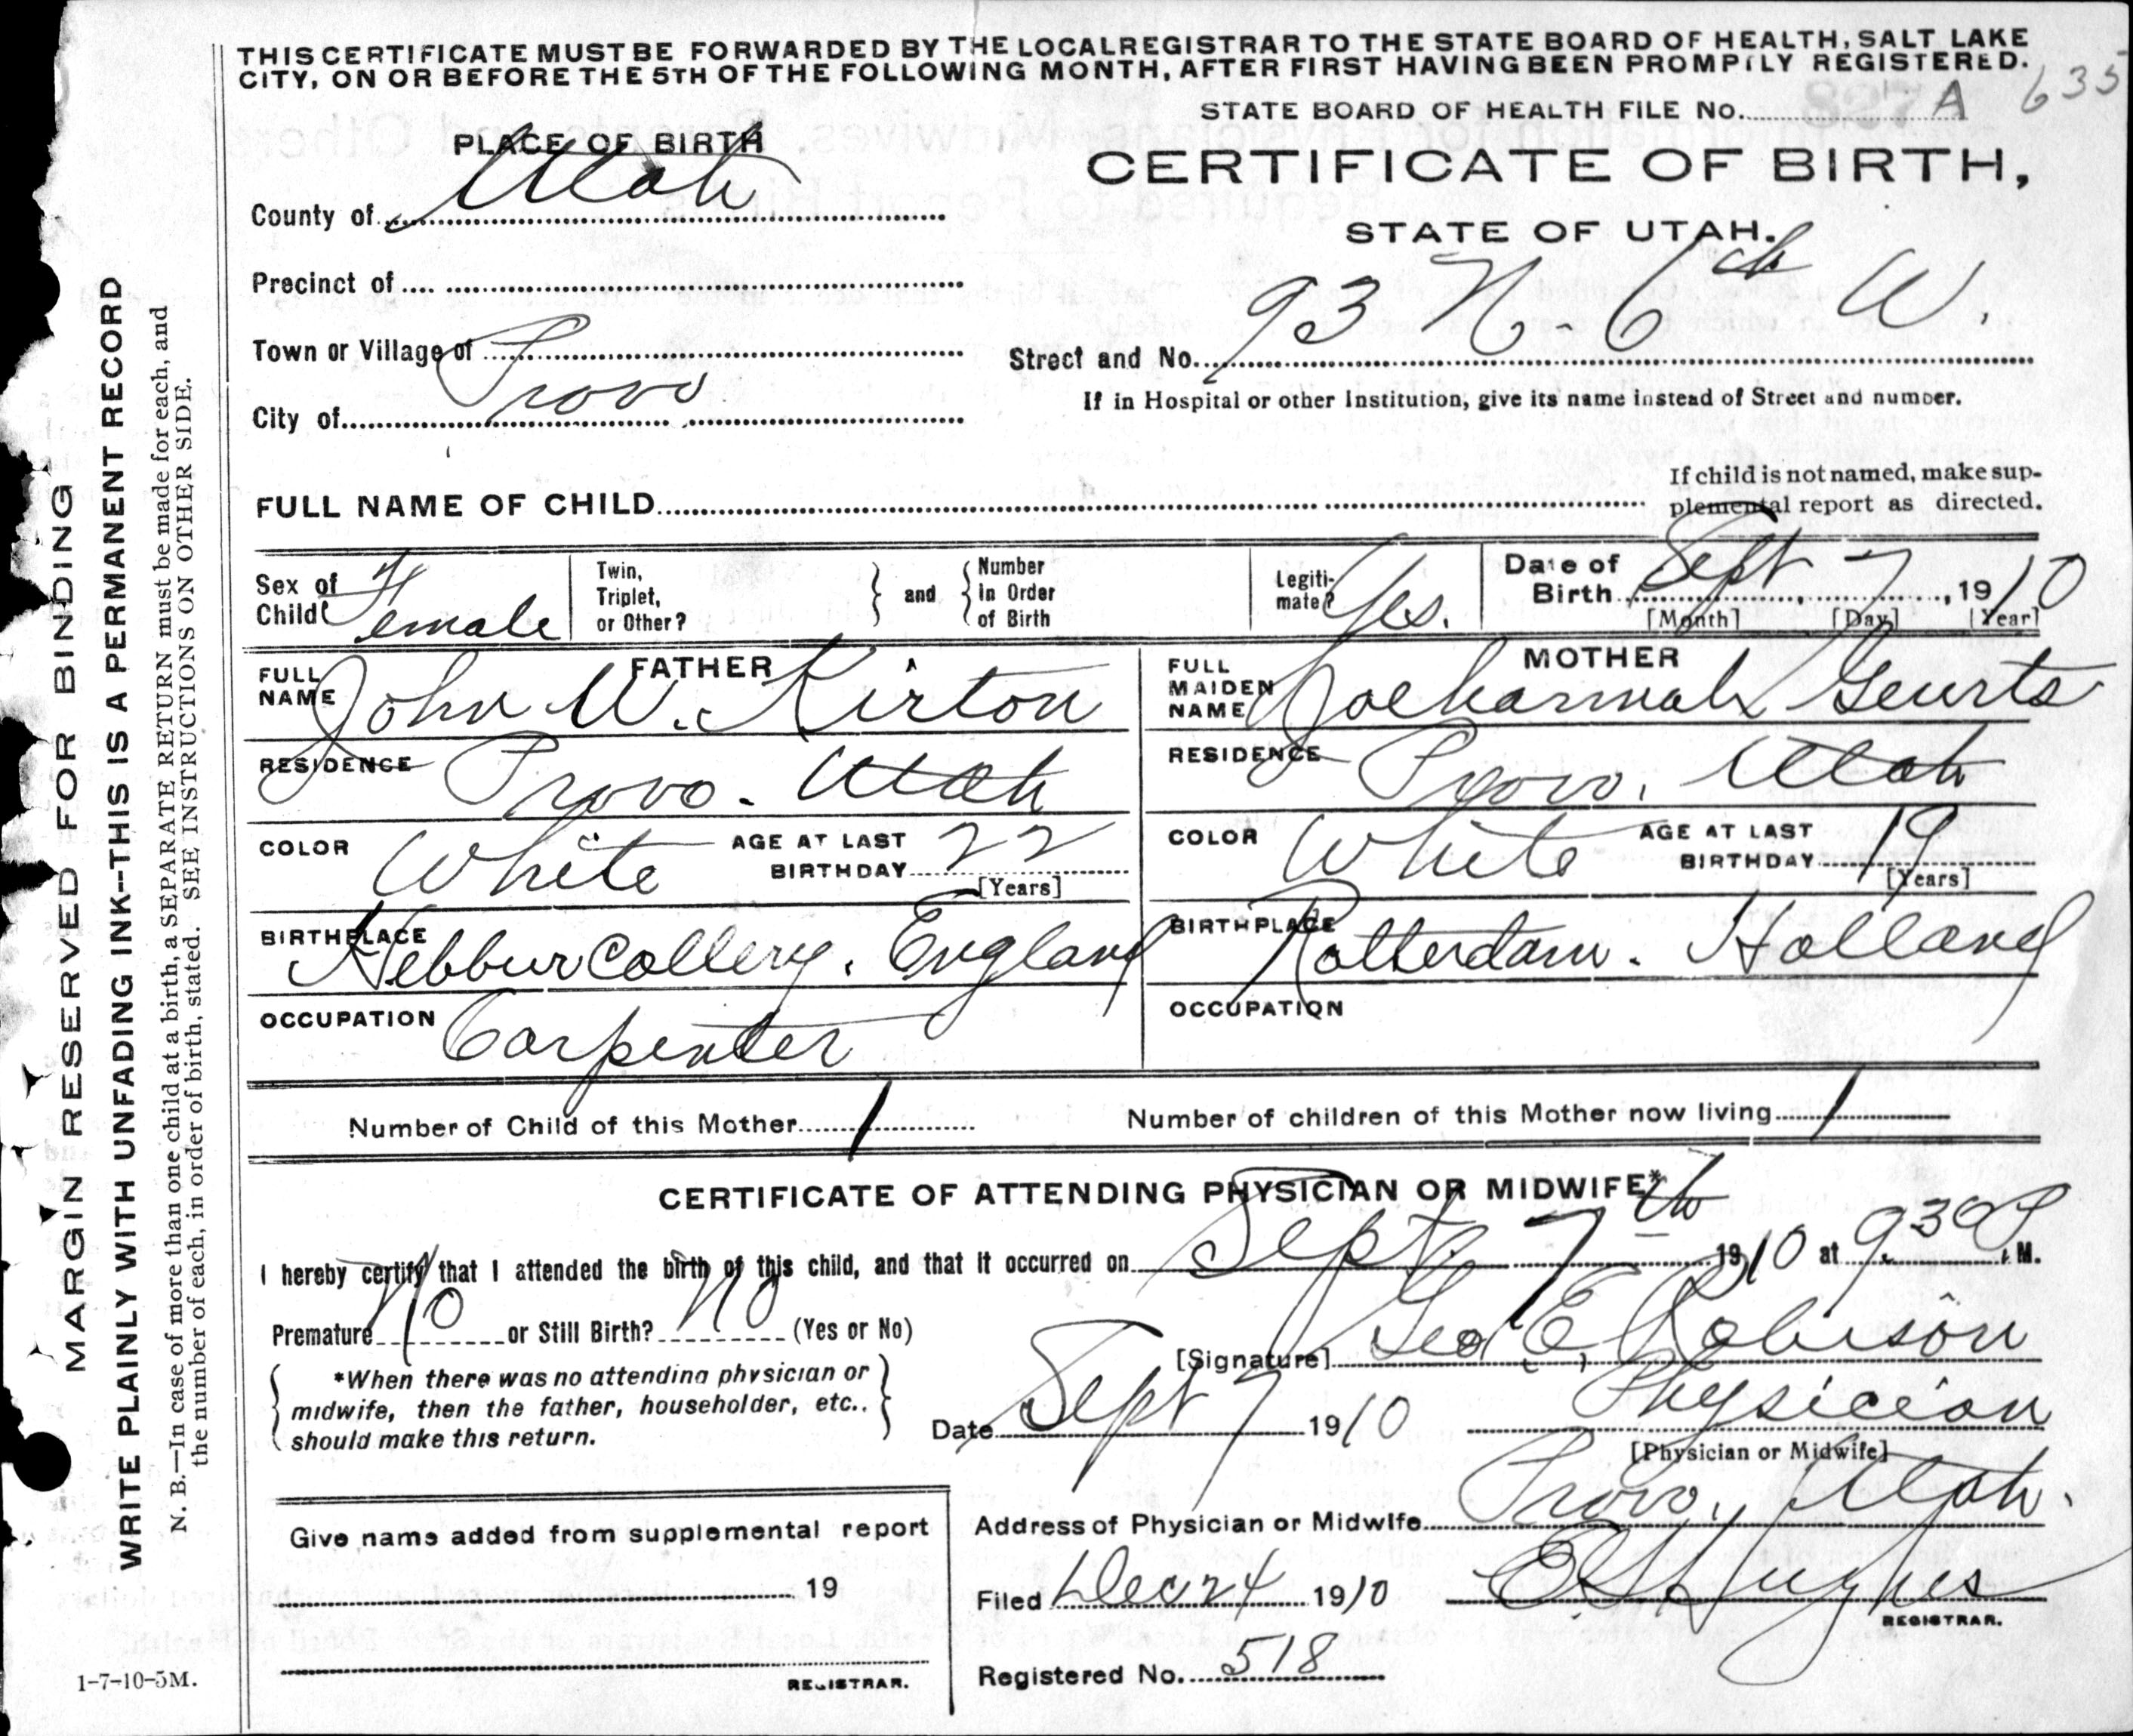 THIS CERTIFICATE MUST BE FORWARDED BY THE LOCAL REGISTRAR TO THE STATE BOARD OF HEALTH, SALT LAKE
CITY, ON OR BEFORE THE 5TH OF THE FOLLOWING MONTH, AFTER FIRST HAVING BEEN PROMPTLY REGISTERED.
STATE BOARD OF HEALTH FILE No. A 635
PLACE OF BIRTH
CERTIFICATE OF BIRTH,
STATE OF UTAH.
County of Utah
Precinct of
Town or Village of
City of Provo
Street and No. 93 N. 6th W.
If in Hospital or other Institution, give its name instead of Street and number.
FULL NAME OF CHILD
If child is not named, make sup-
plemental report as directed.
Sex of Child Female
Twin, Triplet, or Other? and Number in Order of Birth
Legiti-mate? Yes.
Date of Birth Sept 7, 1910
[Month] [Day] [Year]
FATHER
FULL NAME John W. Kirton
RESIDENCE Provo. Utah
COLOR White AGE AT LAST BIRTHDAY 22
[Years]
BIRTHPLACE Hebbur Collery, England
OCCUPATION Carpenter
MOTHER
FULL MAIDEN NAME Joehannah Geurts
RESIDENCE Provo, Utah
COLOR White AGE AT LAST BIRTHDAY 19
[Years]
BIRTHPLACE Rotterdam. Holland
OCCUPATION
Number of Child of this Mother 1 Number of children of this Mother now living 1
CERTIFICATE OF ATTENDING PHYSICIAN OR MIDWIFE*
I hereby certify that I attended the birth of this child, and that it occurred on Sept. 7th 1910 at 9.30 P. M.
Premature No or Still Birth? No (Yes or No)
*When there was no attending physician or
midwife, then the father, householder, etc.,
should make this return.
[Signature] Geo. E. Robison
Date Sept 7 1910 Physician
[Physician or Midwife]
Address of Physician or Midwife Provo, Utah.
Give name added from supplemental report
19
REGISTRAR.
Filed Dec 24 1910 Hughes
REGISTRAR.
Registered No. 518
1-7-10-5M.
MARGIN RESERVED FOR BINDING
WRITE PLAINLY WITH UNFADING INK--THIS IS A PERMANENT RECORD
N. B.—In case of more than one child at a birth, a SEPARATE RETURN must be made for each, and
the number of each, in order of birth, stated. SEE INSTRUCTIONS ON OTHER SIDE.